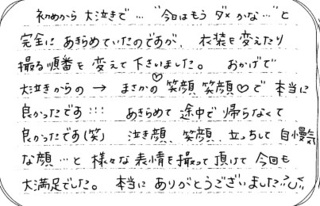 初めから大泣きで…"今日はもうダメかな…"と
完全にあきらめていたのですが、衣装を変えたり
撮る順番を変えて下さいました。おかげで
大泣きからの→まさかの笑顔♡笑顔♡で本当に
良かったです:::あきらめて途中で帰らなくて
良かったです(笑)泣き顔、笑顔、立っちして自慢気
な顔…と様々な表情を撮って頂けて今回も
大満足でした。本当にありがとうございました!!